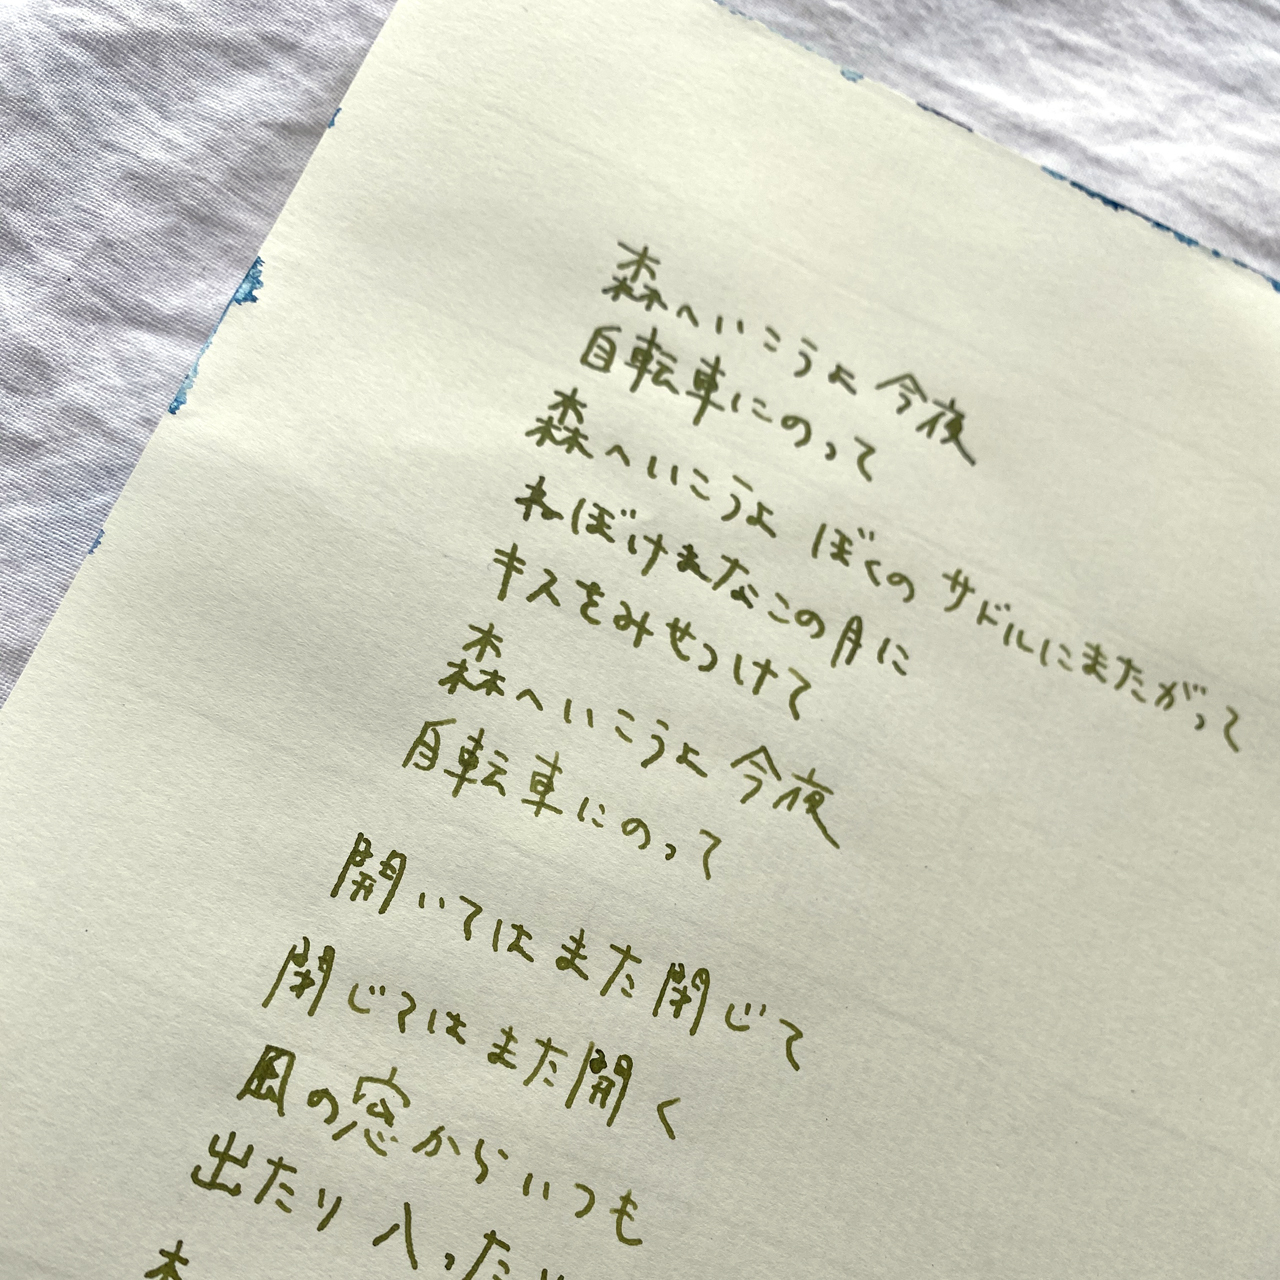 森へいこうよ 今夜
自転車にのって
森へいこうよ ぼくの サドルにまたがって
ねぼけまなこの月に
キスをみせつけて
森へいこうよ 今夜
自転車にのって
開いては また 閉じて
閉じては また 開く
風の窓からいつも
出たり 入った
森